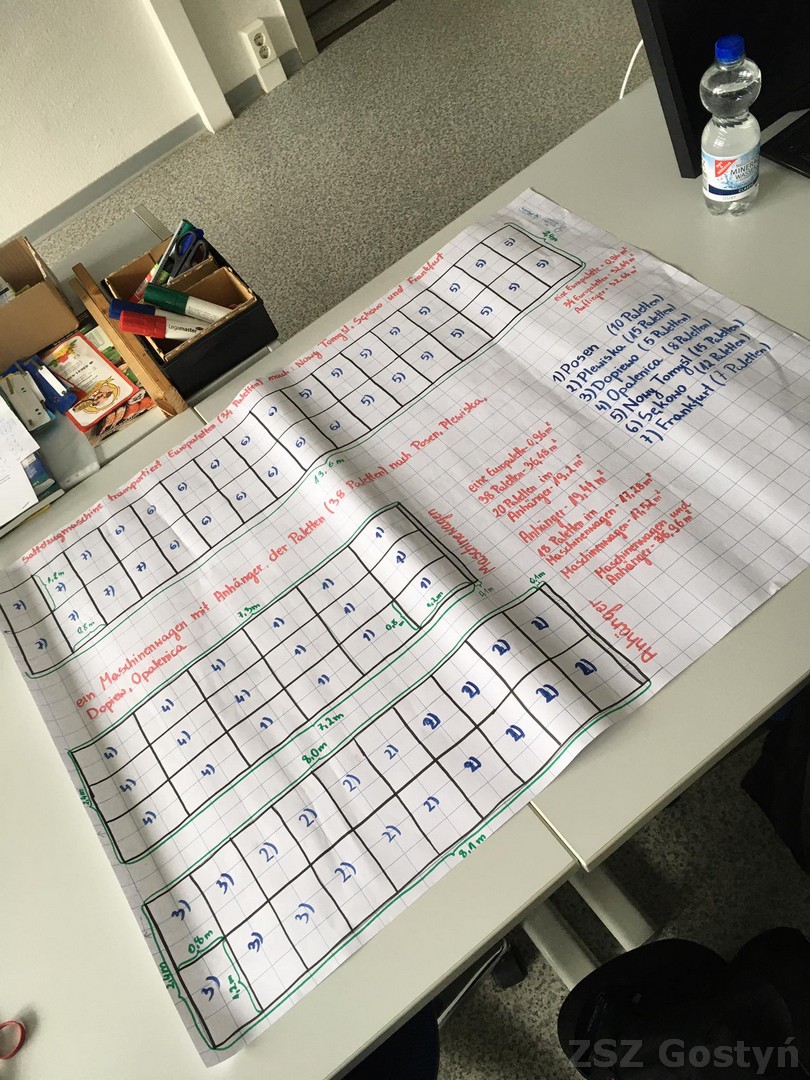 Sattelzugmaschine transportiert Europaletten (34 Paletten) nach Nowy Tomyśl, Sękowo und Frankfurt
eine Europalette = 0,96 m²
34 Europaletten = 32,64 m²
13.6 m
1,2 m
0,8 m
7) 7) 7) 6) 6) 6) 6) 6) 6) 5) 5) 5) 5) 5) 5) 5) 5)
7) 7) 7) 7) 6) 6) 6) 6) 6) 5) 5) 5) 5) 5) 5) 5)
1) Posen (10 Paletten)
2) Plewiska (15 Paletten)
3) Dopiewo (5 Paletten)
4) Opalenica (8 Paletten)
5) Nowy Tomyśl (15 Paletten)
6) Sękowo (12 Paletten)
7) Frankfurt (7 Paletten)
ein Maschinenwagen mit Anhänger, der Paletten (38 Paletten) nach Posen, Plewiska,
Dopiew, Opalenica
Maschinewagen
7,3m
0,1m
4) 4) 4) 1) 1) 1)
4) 4) 4) 1) 1) 1)
4) 4) 1) 1) 1)
0,8 m
1,2 m
2,4m
7,2m
eine Europalette - 0,96 m²
38 Paletten - 36,48 m²
20 Paletten im
Anhänger - 19,2 m²
Anhänger - 19,44 m²
18 Paletten im
Maschinenwagen - 17,28 m²
Maschinenwagen - 17,52 m²
Maschinenwagen und
Anhänger - 36,96 m²
Anhänger
8,0m
0,1m
3) 3) 2) 2) 2) 2) 2) 2) 2) 2)
3) 3) 3) 2) 2) 2) 2) 2) 2) 2)
0,8 m
1,2 m
2,4m
8,1 m
Legamaster
MINERAL
WASSER
ZSZ Gostyń